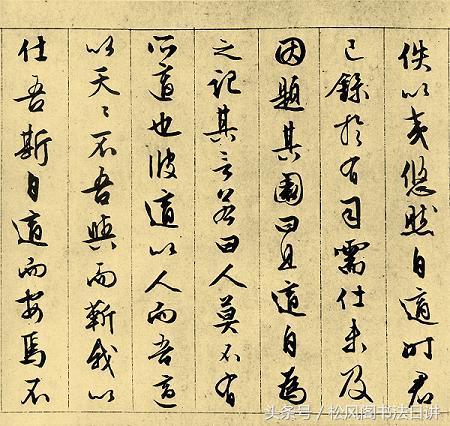 佚以老悠然自適时君
已錄於有司需仕未及
因題其圃曰且適自為
之記其言若曰人莫不有
所適也彼適以人而吾適
以天〻不吾與而靳我以
仕吾斯自適而安焉不
头条号 / 松风阁书法日讲